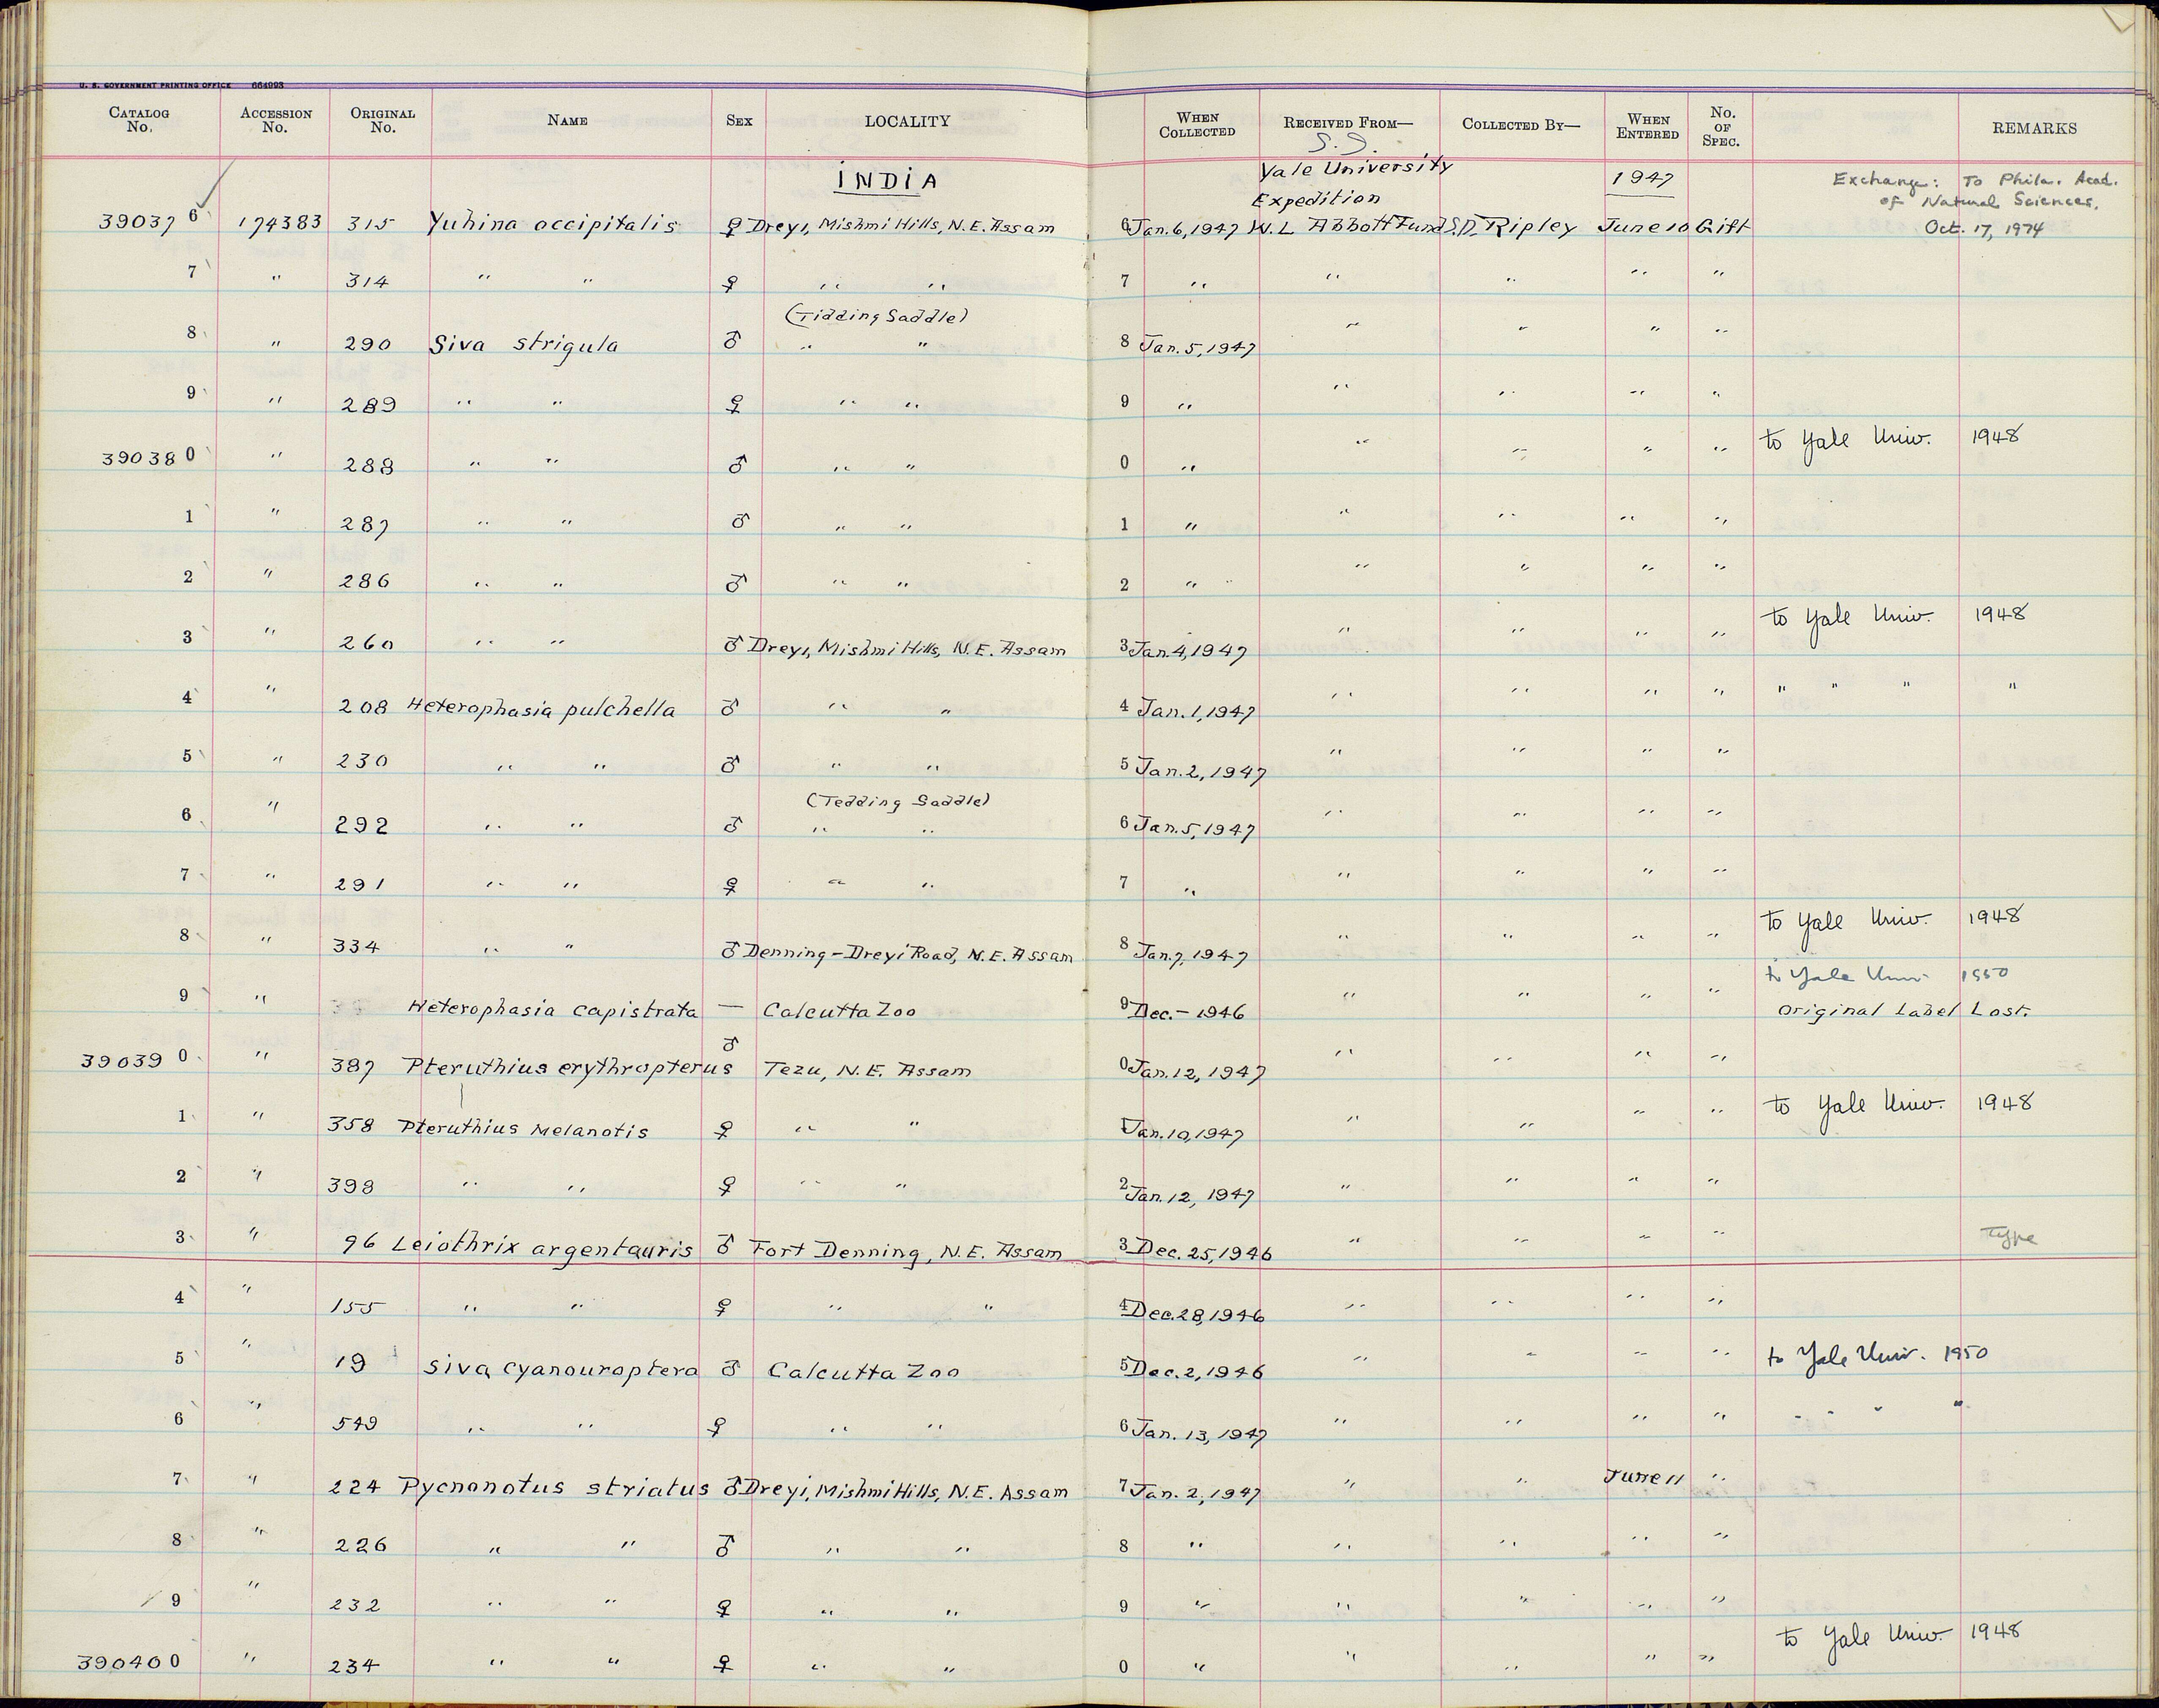 U. S. GOVERNMENT PRINTING OFFICE 664993
CATALOG No. ACCESSION No. ORIGINAL No. NAME SEX LOCALITY WHEN COLLECTED RECEIVED FROM— COLLECTED BY— WHEN ENTERED No. OF SPEC. REMARKS
S. D.
INDIA Yale University 1947 Exchange: To Phila. Acad.
Expedition of Natural Sciences.
390376 174383 315 Yuhina occipitalis ♀ Dreyi, Mishmi Hills, N.E. Assam 6 Jan. 6, 1947 W. L Abbott Fund S.D. Ripley June 10 Gift Oct. 17, 1974
7 " 314 " " ♀ " " 7 " " " " "
(Tidding Saddle)
8 " 290 Siva strigula ♂ " " 8 Jan. 5, 1947 " " " "
9 " 289 " " ♀ " " 9 " " " " "
390380 " 288 " " ♂ " " 0 " " " " " to Yale Univ. 1948
1 " 287 " " ♂ " " 1 " " " " "
2 " 286 " " ♂ " " 2 " " " " "
3 " 260 " " ♂ Dreyi, Mishmi Hills, N.E. Assam 3 Jan. 4, 1947 " " " " to Yale Univ. 1948
4 " 208 Heterophasia pulchella ♂ " " 4 Jan. 1, 1947 " " " " " " " "
5 " 230 " " ♂ " " 5 Jan. 2, 1947 " " " "
(Tedding Saddle)
6 " 292 " " ♂ " " 6 Jan. 5, 1947 " " " "
7 " 291 " " ♀ " " 7 " " " " "
8 " 334 " " ♂ Denning-Dreyi Road, N.E. Assam 8 Jan. 7, 1947 " " " " to Yale Univ. 1948
to Yale Univ. 1950
9 " Heterophasia capistrata — Calcutta Zoo 9 Dec. – 1946 " " " " Original Label Lost.
390390 " 387 Pteruthius erythropterus ♂ Tezu, N.E. Assam 0 Jan. 12, 1947 " " " "
1 " 358 Pteruthius Melanotis ♀ " " Jan. 10, 1947 " " " " to Yale Univ. 1948
2 " 398 " " ♀ " " 2 Jan. 12, 1947 " " " "
3 " 96 Leiothrix argentauris ♂ Fort Denning, N.E. Assam 3 Dec. 25, 1946 " " " " Type
4 " 155 " " ♀ " " 4 Dec. 28, 1946 " " " "
5 " 19 Siva cyanouroptera ♂ Calcutta Zoo 5 Dec. 2, 1946 " " " " to Yale Univ. 1950
6 " 549 " " ♀ " " 6 Jan. 13, 1947 " " " " " " " "
7 " 224 Pycnonotus striatus ♂ Dreyi, Mishmi Hills, N.E. Assam 7 Jan. 2, 1947 " " June 11 "
8 " 226 " " ♂ " " 8 " " " " "
9 " 232 " " ♀ " " 9 " " " " "
390400 " 234 " " ♀ " " 0 " " " " " to Yale Univ. 1948